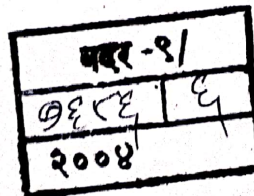 वदर -९/
७६८६ ६
२००४